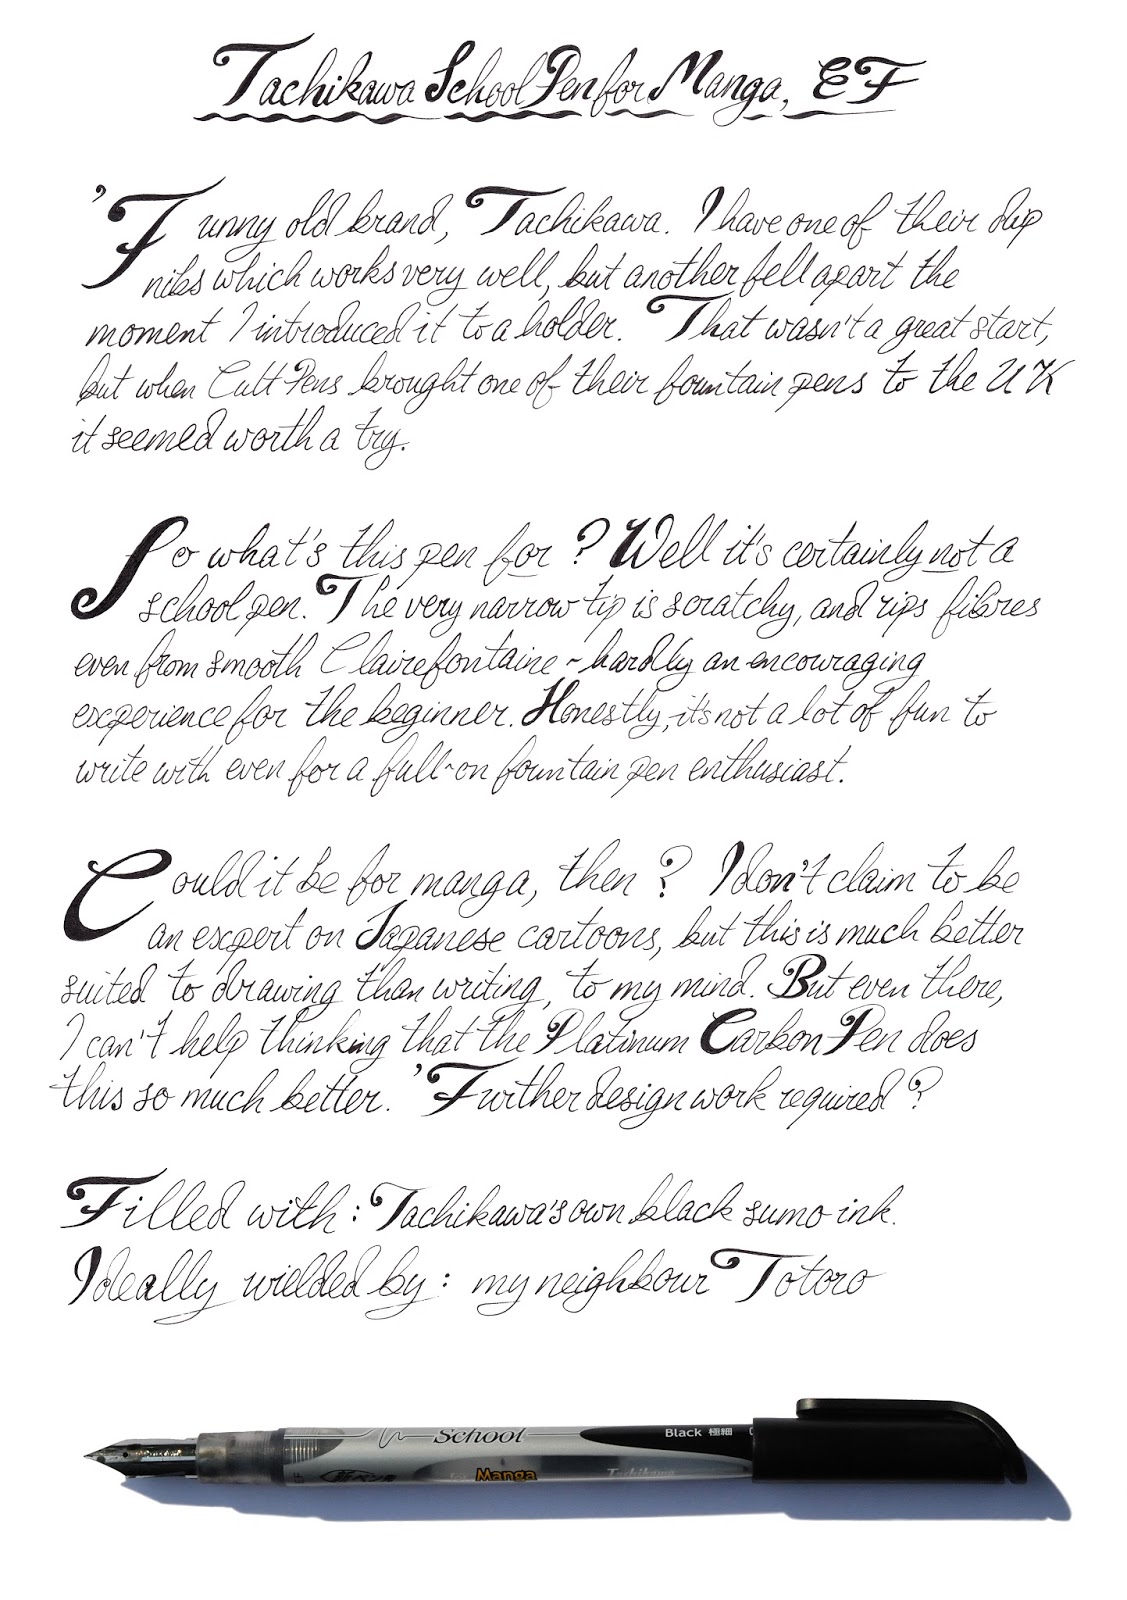 Tachikawa School Pen for Manga, EF
'Funny old brand, Tachikawa. I have one of their dip
nibs which works very well, but another fell apart the
moment I introduced it to a holder. That wasn't a great start,
but when Cult Pens brought one of their fountain pens to the UK
it seemed worth a try.
So what's this pen for? Well it's certainly not a
school pen. The very narrow tip is scratchy, and rips fibres
even from smooth Clairefontaine - hardly an encouraging
experience for the beginner. Honestly, it's not a lot of fun to
write with even for a full-on fountain pen enthusiast.
Could it be for manga, then? I don't claim to be
an expert on Japanese cartoons, but this is much better
suited to drawing than writing, to my mind. But even there,
I can't help thinking that the Platinum Carbon Pen does
this so much better. 'Further design work required'?
Filled with: Tachikawa's own black sumo ink.
Ideally wielded by: my neighbour Totoro
School
Black 極細
for Manga
Tachikawa